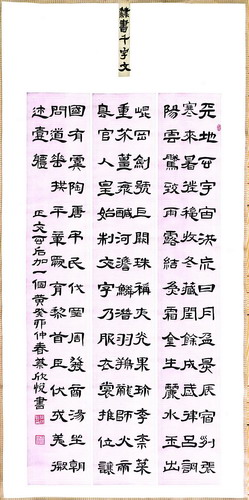 隸書千字文
天地玄宇宙洪荒日月盈昃辰宿列張
寒來暑往秋收冬藏閏餘成歲律呂調
陽雲騰致雨露結為霜金生麗水玉出
崐岡劍號巨闕珠稱夜光果珍李柰菜
重芥薑海鹹河澹鱗潛羽翔龍師火帝
鳥官人皇始制文字乃服衣裳推位讓
國有虞陶唐弔民伐罪周發商湯坐朝
問道垂拱平章愛育黎首臣伏戎羌遐
邇壹體
正文玄后加一個黃癸卯仲春蔡欣悅書